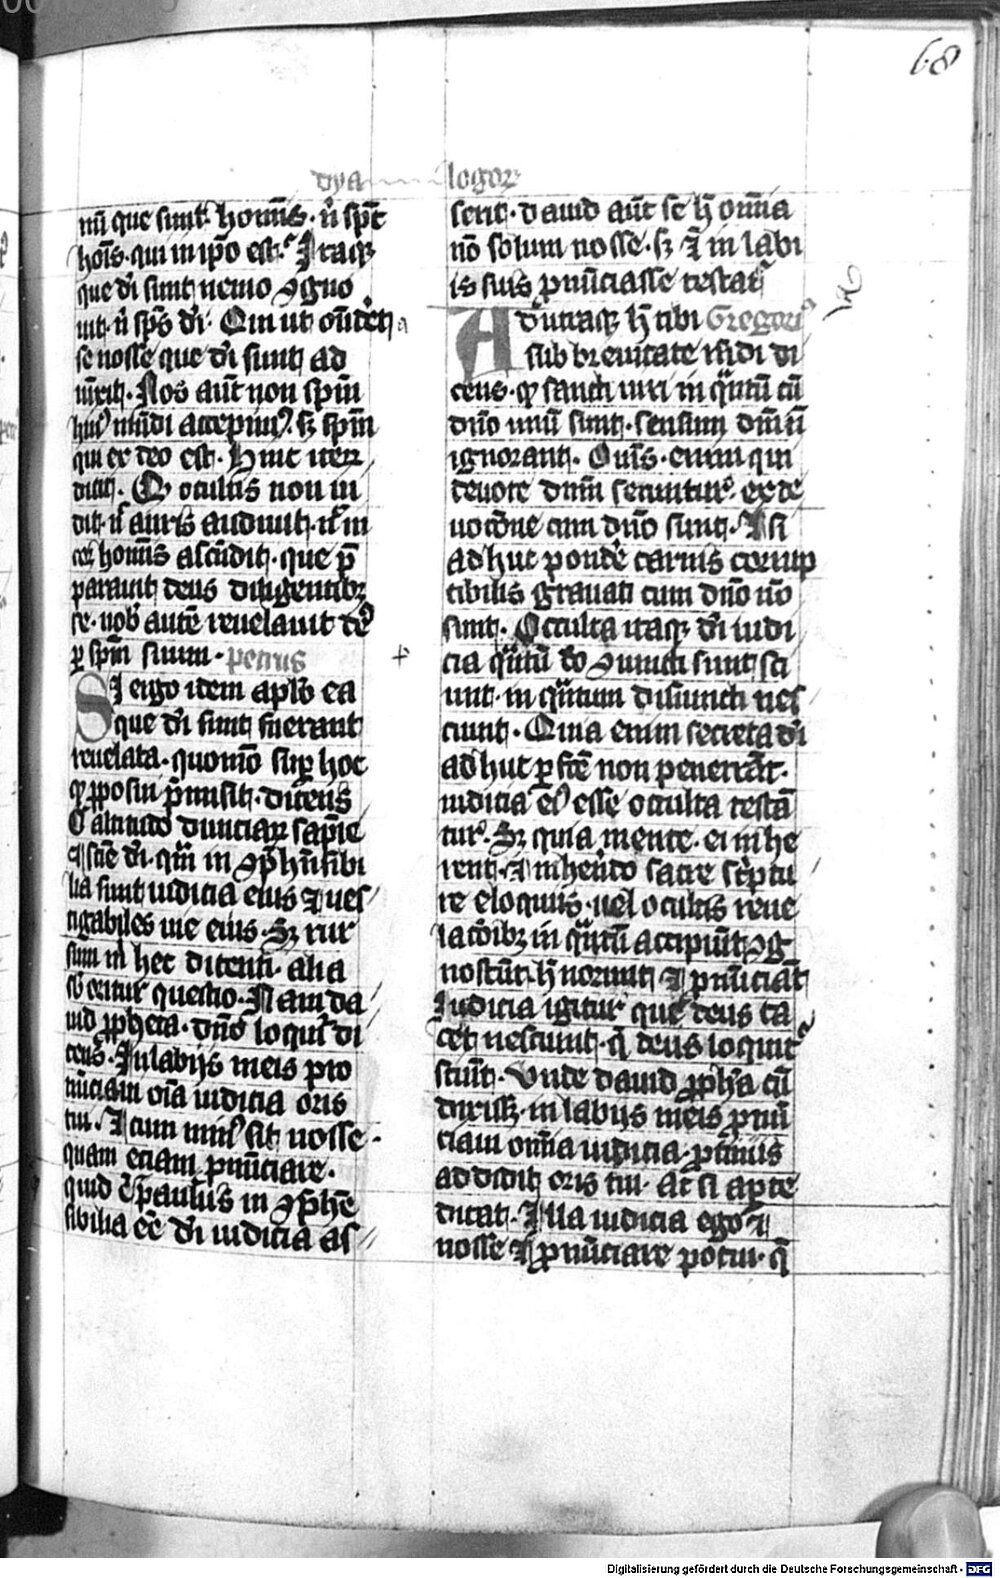 68
dya logoꝝ
nū que sunt hoīnis · nͥ spūc
hoīs · qui in ip̄o est. Itaqꝫ
que dī sunt nemo ꝯgno
uit · nͥ spūs dī · Qui ut oñdet
se nosse que dī sunt ad
iūxit · Nos aūt non spm̄
huiꝰ mūdi accepimꝰ · sꝫ spm̄
qui ex deo est · Hinc iteꝝ
dicit · Q oculus non ui
dit · nͨ auris audiuit · nͨ in
cor hoīnis ascēdit · que p̄
parauit deus diligentibꝫ
se · nobͨ autē reuelauit deꝰ
ꝑ spm̄ suum · petrus
Si ergo idem apl̄o ea
que dī sunt fuerant
reuelata · quomō suꝑ hoc
ꝙ ꝓposui p̄misit · dicens
O altitudo diuiciaꝝ sapīe
⁊ scīe dī · qm̄ in ꝯp̄hēsibi
lia sunt iudicia eius ⁊ ues
tigabiles uie eius · Sꝫ rur
sum mͥ hec dicenti · alia
sb̄oritur questio · Nam da
uid ꝓpheta · dn̄o loquitͬ di
cens · In labijs meis pro
nūciaui oīa iudicia oris
tui · ⁊ cum minꝰ sit nosse ·
quam etiam ꝓnūciare ·
quid ē paulus in ꝯp̄hē
sibilia eē dī iudicia as
serit · dauid aūt se hͦ omīa
nō solum nosse · sꝫ ⁊ in labi
is suis ꝓnūciasse testatͬ
Ad utraqꝫ hͦ tibi Gregoriꝰ
sub breuitate rn̄di di
cens · ꝙ sancti uiri in q̄ntū cū
dn̄o unū sunt · sensum dm̄i nͦ
ignorant · Om̄s · enim qui
deuote dnm̄ secuntur · ex de
uocōne cum dn̄o sunt · ⁊ si
ad huc pond̄e carnis corrup
tibilis grauati cum dn̄o nō
sunt · Occulta itaqꝫ dī iudi
cia q̄ntū do ꝯiuncti sunt sci
unt · in q̄ntum disiuncti nes
ciunt · Quia enim secreta dī
ad huc ꝑfc̄e non penetrāt ·
iudicia eiꝰ esse occulta testā
tur · Sꝫ quia mente · ei inhe
rent · ⁊ inherēdo sacre sc̄ptu
re eloquiis · uel ocultis reue
lacōibꝫ in q̄ntū accipiūt · ꝯg
noscūt · hͦ norunt ⁊ ꝓnūciāt
Iudicia igitur que deus ta
cet nesciunt · q̄ deus loquitͬ
sciūt · Vnde dauid ꝓpha cū
dixisꝫ · in labijs meis ꝓnū
ciaui omīa iudicia · ꝓtinus
addidit oris tui · ac si aꝑte
dicat · Illa iudicia ego ⁊
nosse ⁊ ꝓnūciare potui · q̄
Digitalisierung gefördert durch die Deutsche Forschungsgemeinschaft - DFG